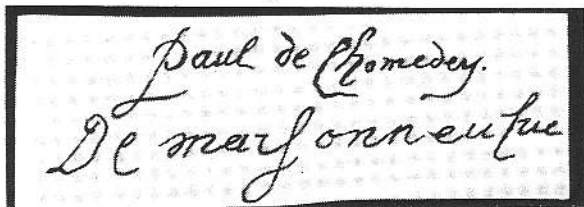 Paul de Chomedey.
De maisonneufue